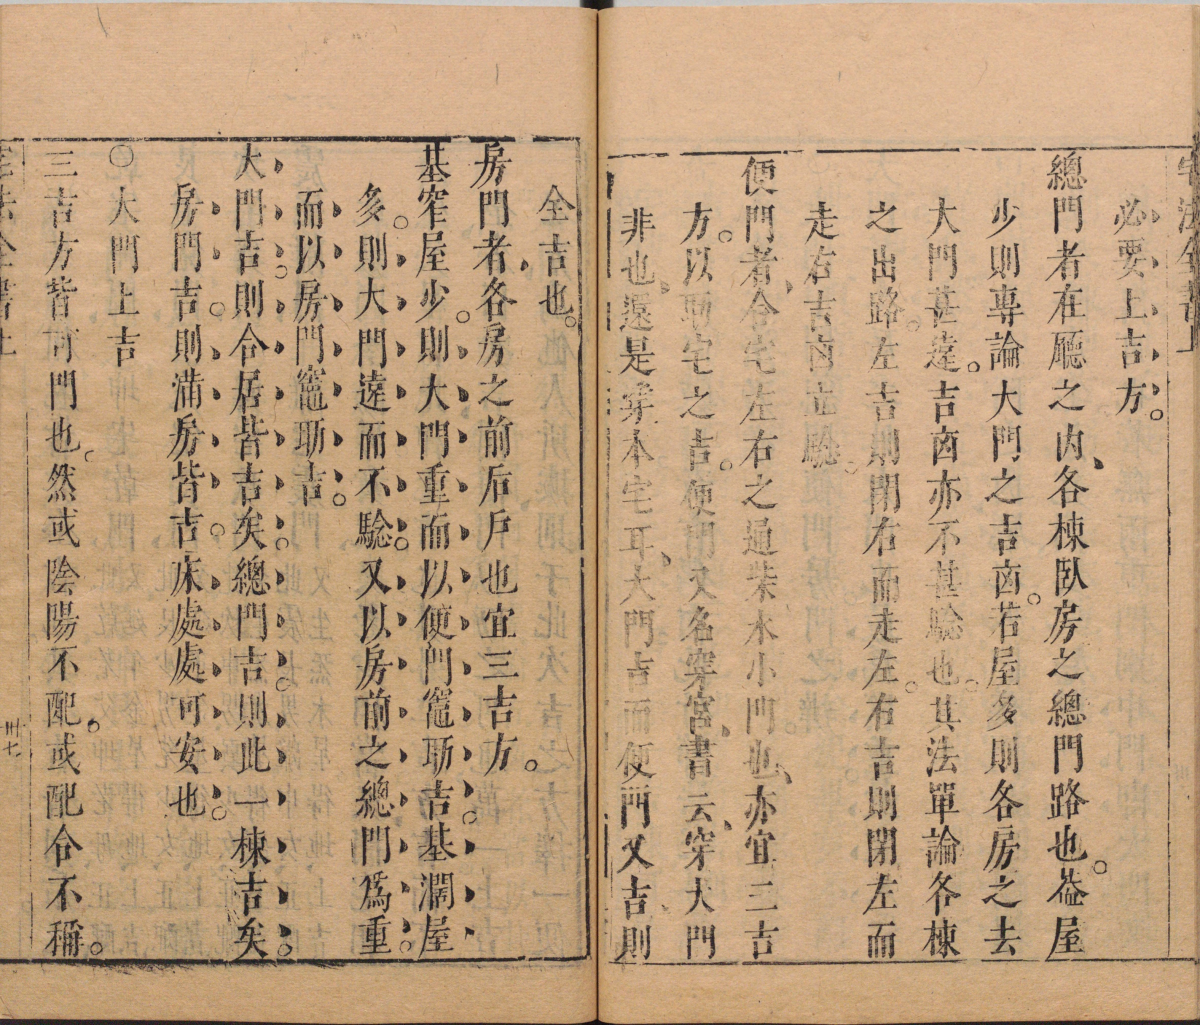 宅法全書上
必要上吉方。
總門者在廳之内、各棟臥房之總門路也。葢屋
少則專論大門之吉㐫。若屋多則各房之去
大門甚遠。吉㐫亦不甚騐也。其法單論各棟
之出路。左吉則閉右而走左。右吉則閉左而
走右吉㐫立騐。
便門者、合宅左右之通柴水小門也、亦宜三吉
方。以助宅之吉。便門又名穿宫、書云、穿大門
非也、還是穿本宅耳、大門吉而便門又吉、則
全吉也。
房門者、各房之前后戶也宜三吉方。
基窄屋少。則大門重而以便門竈助吉。基濶屋
多。則大門遠而不騐。又以房前之總門爲重。
而以房門竈助吉。
大門吉。則合居皆吉矣。總門吉。則此一棟吉矣
房門吉。則滿房皆吉。床處處可安也。
○大門上吉
三吉方皆可門也。然或陰陽不配。或配合不稱。
宅法全書上
卅七